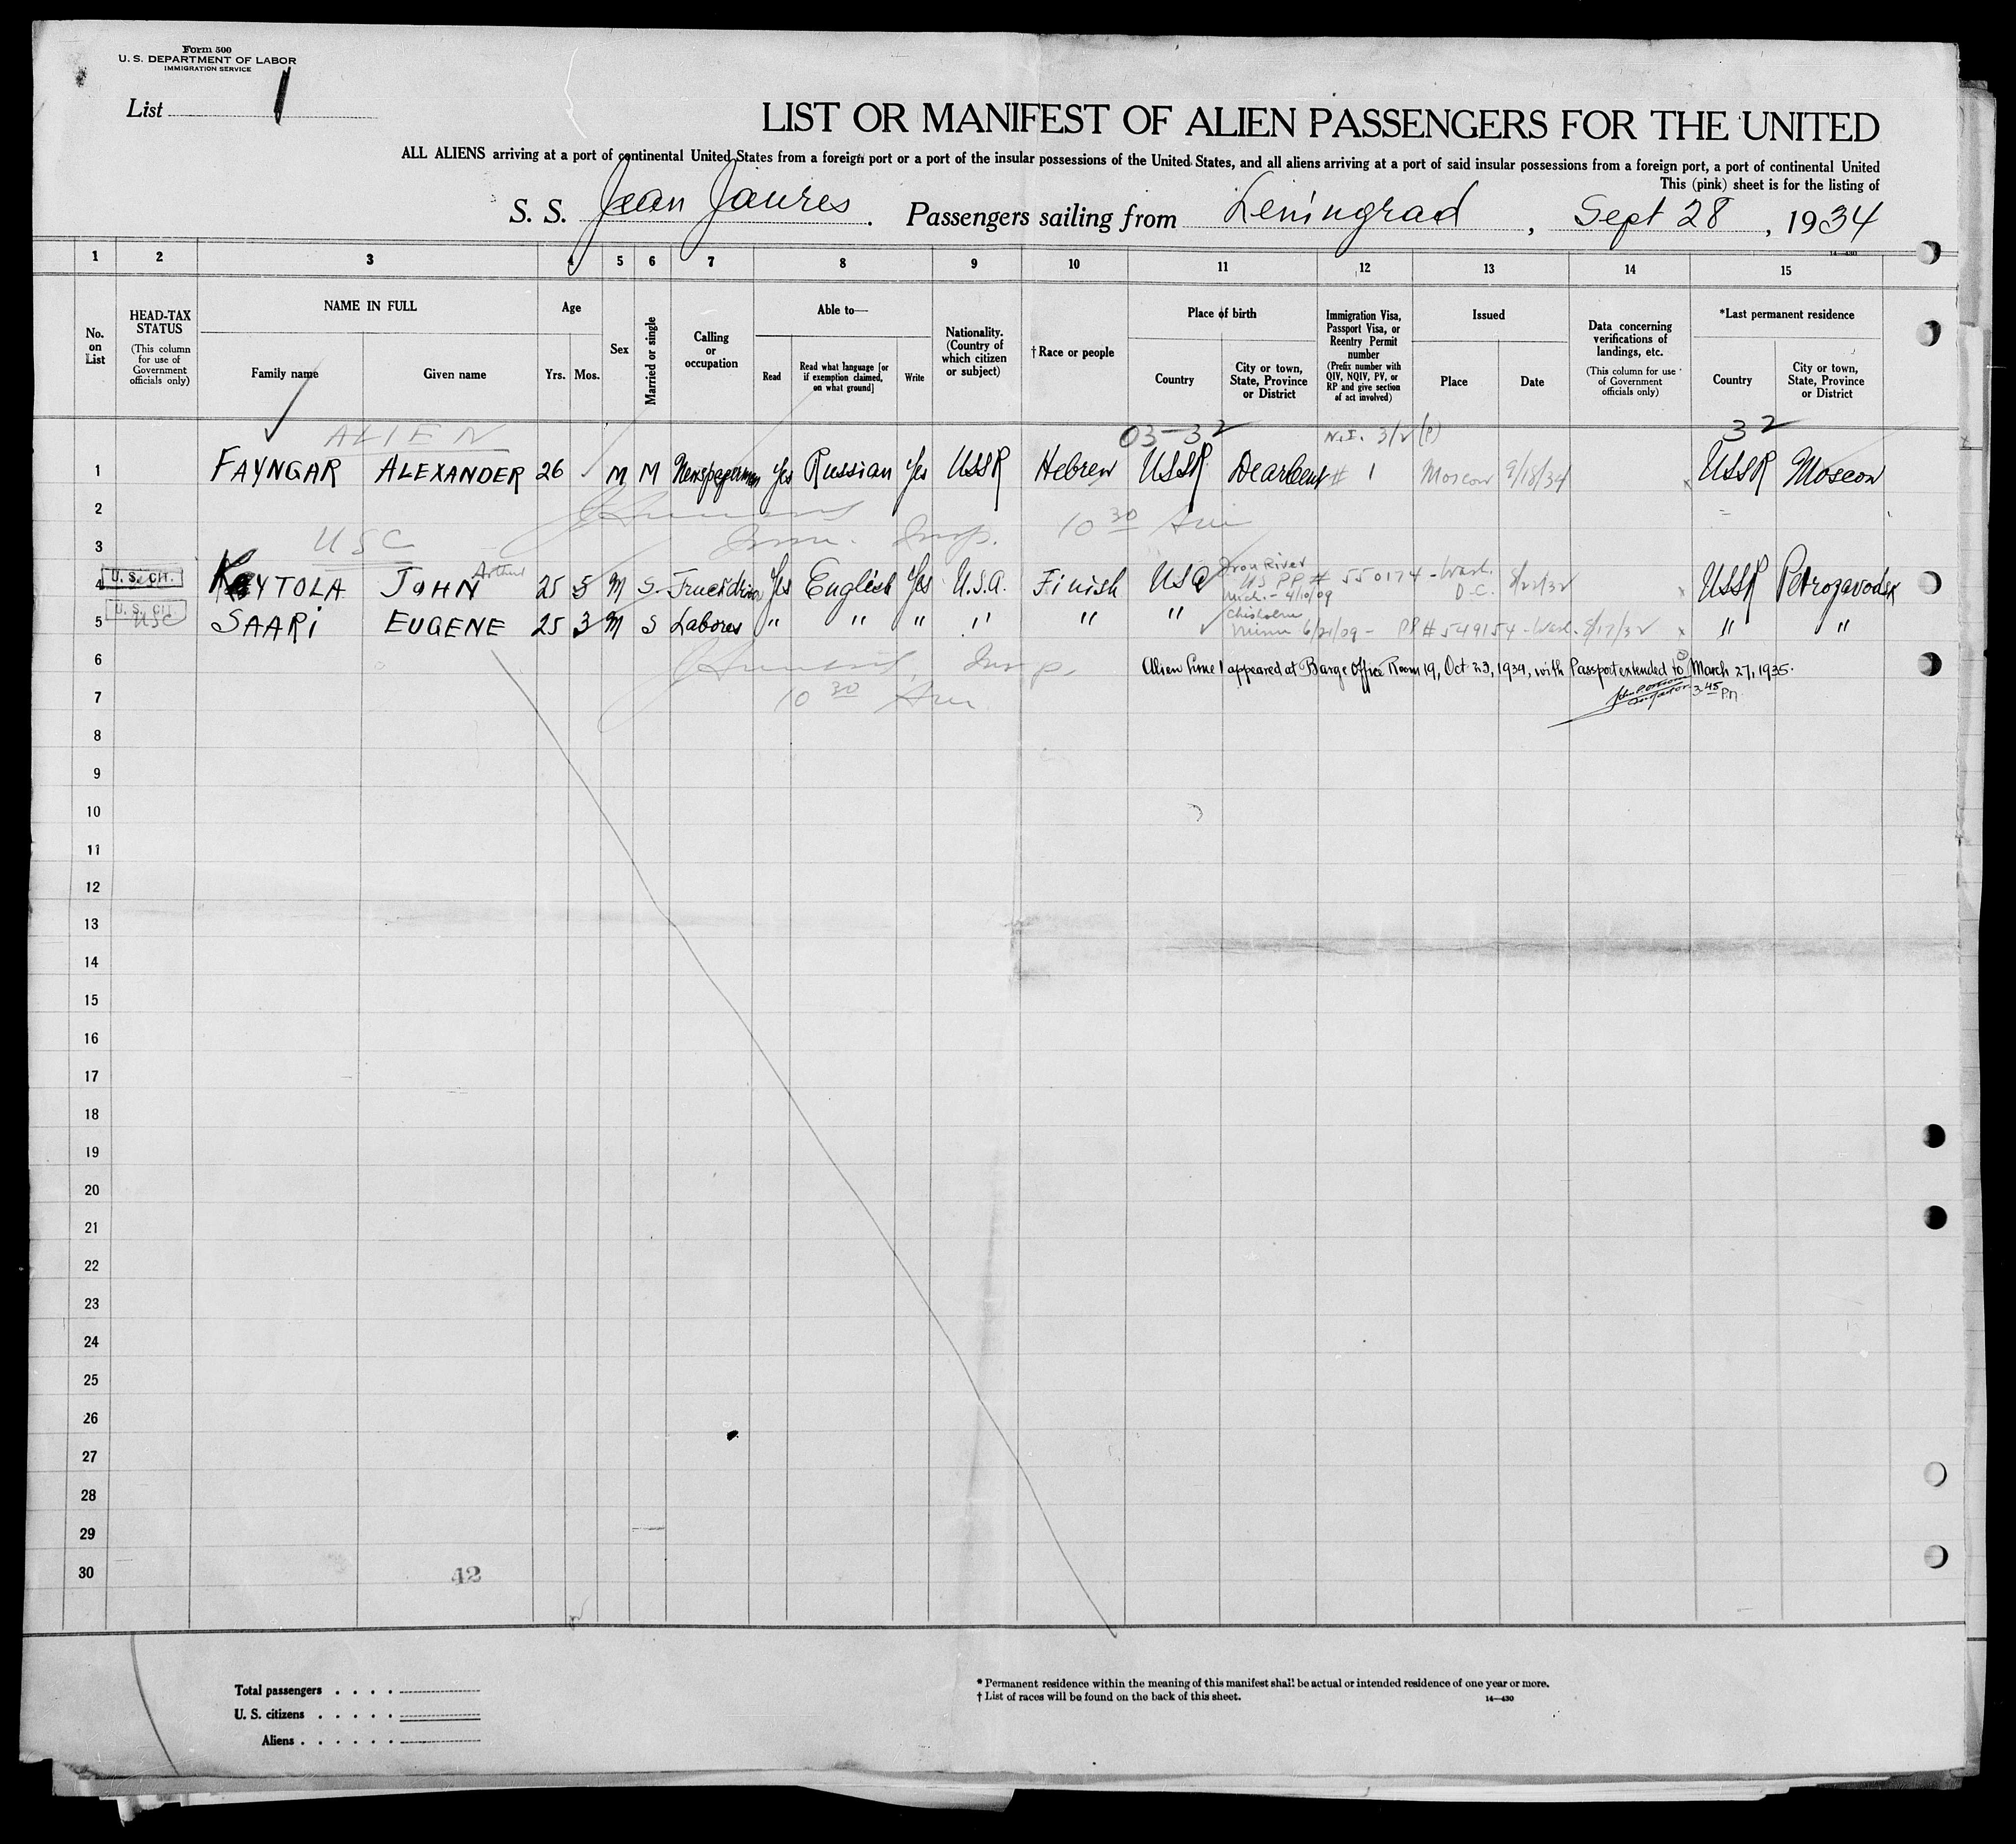 Form 500
U. S. DEPARTMENT OF LABOR
IMMIGRATION SERVICE
List 1
LIST OR MANIFEST OF ALIEN PASSENGERS FOR THE UNITED
ALL ALIENS arriving at a port of continental United States from a foreign port or a port of the insular possessions of the United States, and all aliens arriving at a port of said insular possessions from a foreign port, a port of continental United
This (pink) sheet is for the listing of
S. S. Jean Jaures. Passengers sailing from Leningrad, Sept 28, 1934
14—430
1 2 3 4 5 6 7 8 9 10 11 12 13 14 15
No. on List
HEAD-TAX STATUS
(This column for use of Government officials only)
NAME IN FULL
Family name
Given name
Age
Yrs. Mos.
Sex
Married or single
Calling or occupation
Able to—
Read
Read what language [or if exemption claimed, on what ground]
Write
Nationality. (Country of which citizen or subject)
† Race or people
Place of birth
Country
City or town, State, Province or District
Immigration Visa, Passport Visa, or Reentry Permit number
(Prefix number with QIV, NQIV, PV, or RP and give section of act involved)
Issued
Place
Date
Data concerning verifications of landings, etc.
(This column for use of Government officials only)
*Last permanent residence
Country
City or town, State, Province or District
ALIEN 03-32 N.I. 3/2 (P) 32
1 FAYNGAR ALEXANDER 26 M M Newspaperman Yes Russian Yes USSR Hebrew USSR # 1 Moscow 9/18/34 USSR Moscow
2
Imm. Insp. 10 30 Am
3 USC
4 U. S. CIT. KAYTOLA JOHN Arthur 25 5 M S Truckdriver Yes English Yes U.S.A. Finish USA Iron River Mich. - 4/10/09 US PP # 550174 - Wash. D.C. 8/22/32 USSR Petrozavodsk
5 U. S. CIT. USC SAARI EUGENE 25 3 M S Laborer " " " " " " Chisholm Minn 6/21/09 - PP # 549154 - Wash. 8/17/32 " "
6 Insp. Alien Line 1 appeared at Barge Office Room 19, Oct 23, 1934, with Passport extended to March 27, 1935.
7 10 30 Am Inspector 3 45 PM
8
9
10
11
12
13
14
15
16
17
18
19
20
21
22
23
24
25
26
27
28
29
30
42
Total passengers . . . .
U. S. citizens . . . . .
Aliens . . . . . .
* Permanent residence within the meaning of this manifest shall be actual or intended residence of one year or more.
† List of races will be found on the back of this sheet.
14—430